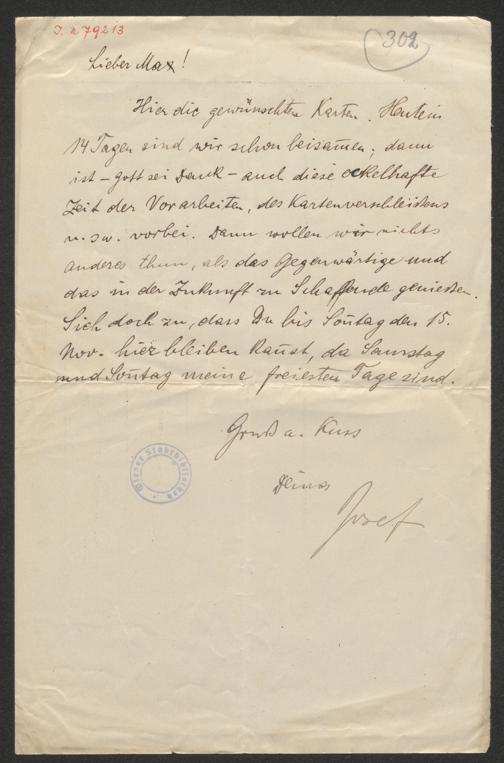 I. N 79213
302
Lieber Max!
Hier die gewünschten Karten. Heute in
14 Tagen sind wir schon beisam̄en; dann
ist – gott sei Dank – auch diese eckelhafte
Zeit der Vorarbeiten, des Kartenverschleisses
u. sw. vorbei. Dann wollen wir nichts
anderes thun, als das Gegenwärtige und
das in der Zukunft zu Schaffende genießen.
Sieh doch zu, dass Du bis Son̄tag den 15.
Nov. hier bleiben kan̄st, da Samstag
und Son̄tag meine freiesten Tage sind.
Gruß u. Kuss
Deines
Josef
Wiener Stadtbibliothek